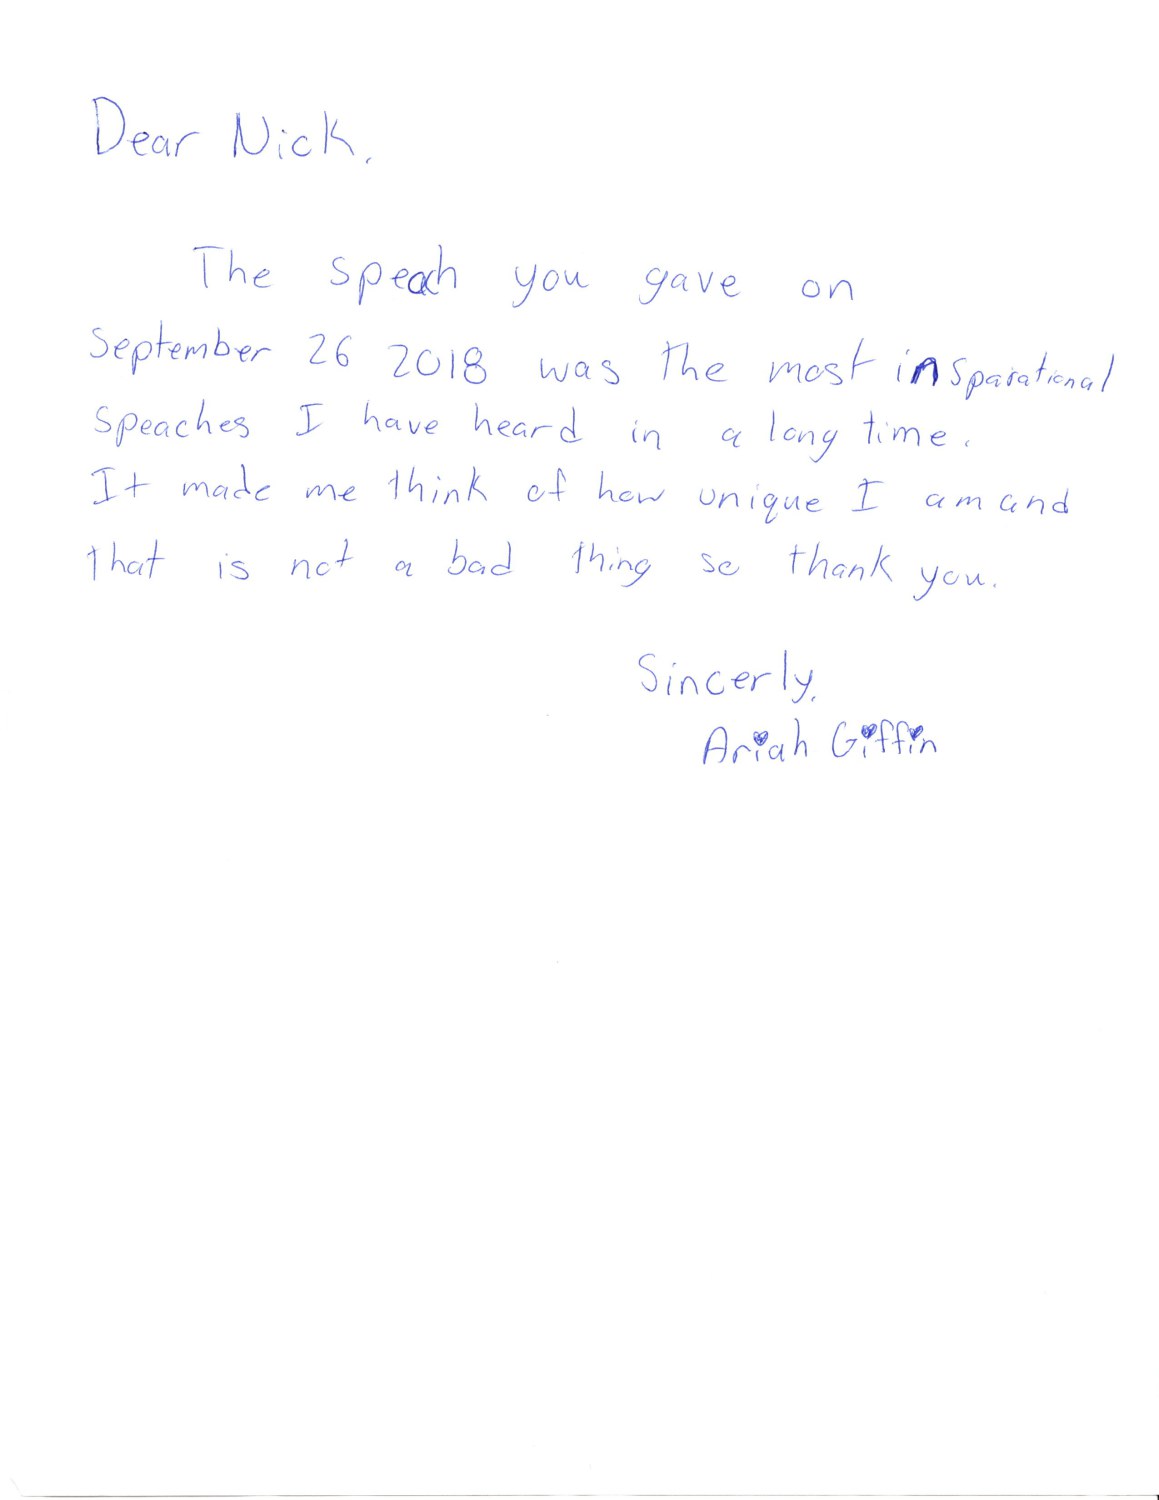 Dear Nick,
The speach you gave on
September 26 2018 was the most insparational
speaches I have heard in a long time.
It made me think of how unique I am and
that is not a bad thing so thank you.
Sincerly,
Ariah Giffin